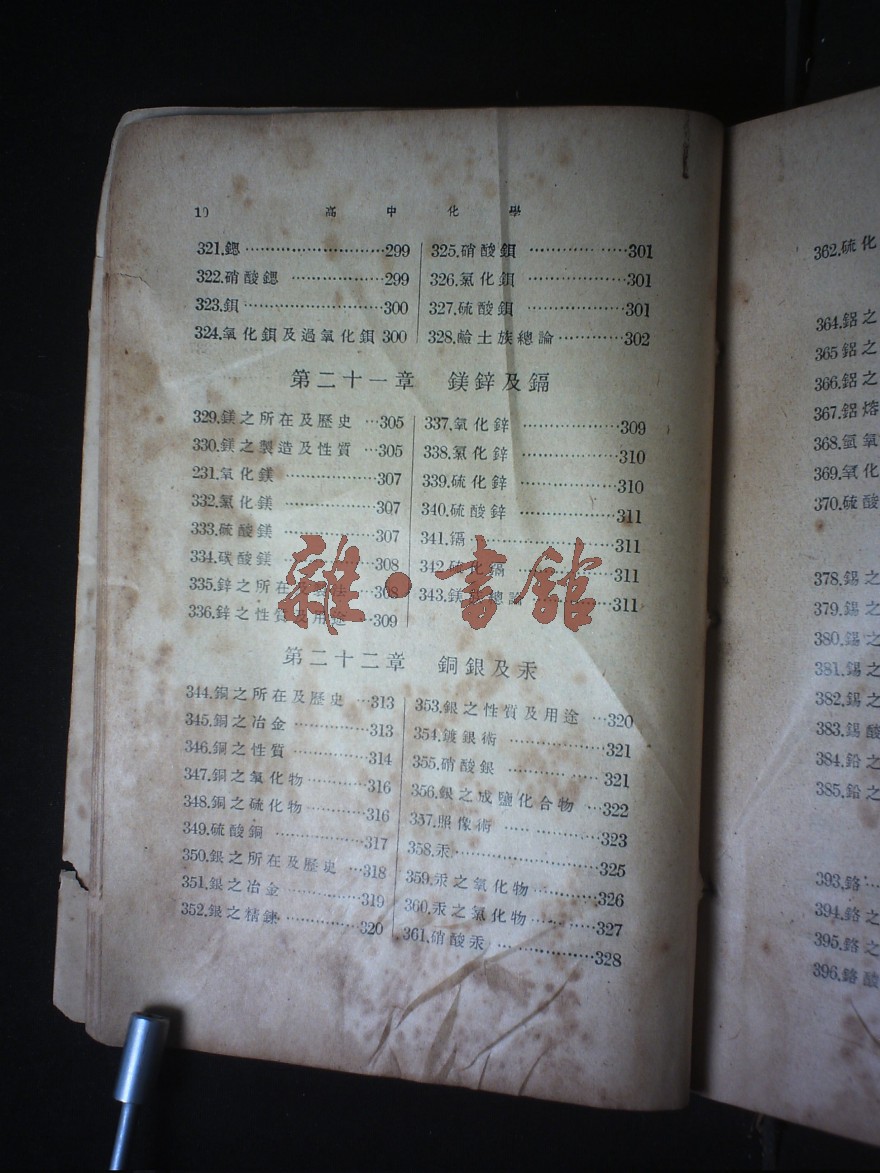 10 高中化學
321.鍶⋯⋯⋯⋯⋯⋯⋯⋯299
322.硝酸鍶⋯⋯⋯⋯⋯⋯299
323.鋇⋯⋯⋯⋯⋯⋯⋯⋯300
324.氧化鋇及過氧化鋇 300
325.硝酸鋇⋯⋯⋯⋯⋯⋯301
326.氯化鋇⋯⋯⋯⋯⋯⋯301
327.硫酸鋇⋯⋯⋯⋯⋯⋯301
328.鹼土族總論⋯⋯⋯⋯302
第二十一章 鎂鋅及鎘
329.鎂之所在及歷史⋯305
330.鎂之製造及性質⋯305
231.氧化鎂⋯⋯⋯⋯⋯307
332.氯化鎂⋯⋯⋯⋯⋯307
333.硫酸鎂⋯⋯⋯⋯⋯307
334.碳酸鎂⋯⋯⋯⋯⋯308
335.鋅之所在及製法⋯308
336.鋅之性質及用途⋯309
337.氧化鋅⋯⋯⋯⋯⋯309
338.氯化鋅⋯⋯⋯⋯⋯310
339.硫化鋅⋯⋯⋯⋯⋯310
340.硫酸鋅⋯⋯⋯⋯⋯311
341.鎘⋯⋯⋯⋯⋯⋯⋯311
342.硫化鎘⋯⋯⋯⋯⋯311
343.鎂 總論⋯⋯⋯⋯311
雜·書館
第二十二章 銅銀及汞
344.銅之所在及歷史⋯313
345.銅之冶金⋯⋯⋯⋯313
346.銅之性質⋯⋯⋯⋯314
347.銅之氯化物⋯⋯⋯316
348.銅之硫化物⋯⋯⋯316
349.硫酸銅⋯⋯⋯⋯⋯317
350.銀之所在及歷史⋯318
351.銀之冶金⋯⋯⋯⋯319
352.銀之精鍊⋯⋯⋯⋯320
353.銀之性質及用途⋯320
354.鍍銀術⋯⋯⋯⋯⋯321
355.硝酸銀⋯⋯⋯⋯⋯321
356.銀之成鹽化合物⋯322
357.照像術⋯⋯⋯⋯⋯323
358.汞⋯⋯⋯⋯⋯⋯⋯325
359.汞之氧化物⋯⋯⋯326
360.汞之氯化物⋯⋯⋯327
361.硝酸汞⋯⋯⋯⋯⋯328
362.硫化
364.鋁之
365鋁之
366.鋁之
367.鋁熔
368.氫氧
369.氧化
370.硫酸
378.錫之
379.錫之
380.錫之
381.錫之
382.錫之
383.錫酸
384.鉛之
385.鉛之
393.鉻⋯
394.鉻之
395.鉻之
396.鉻酸